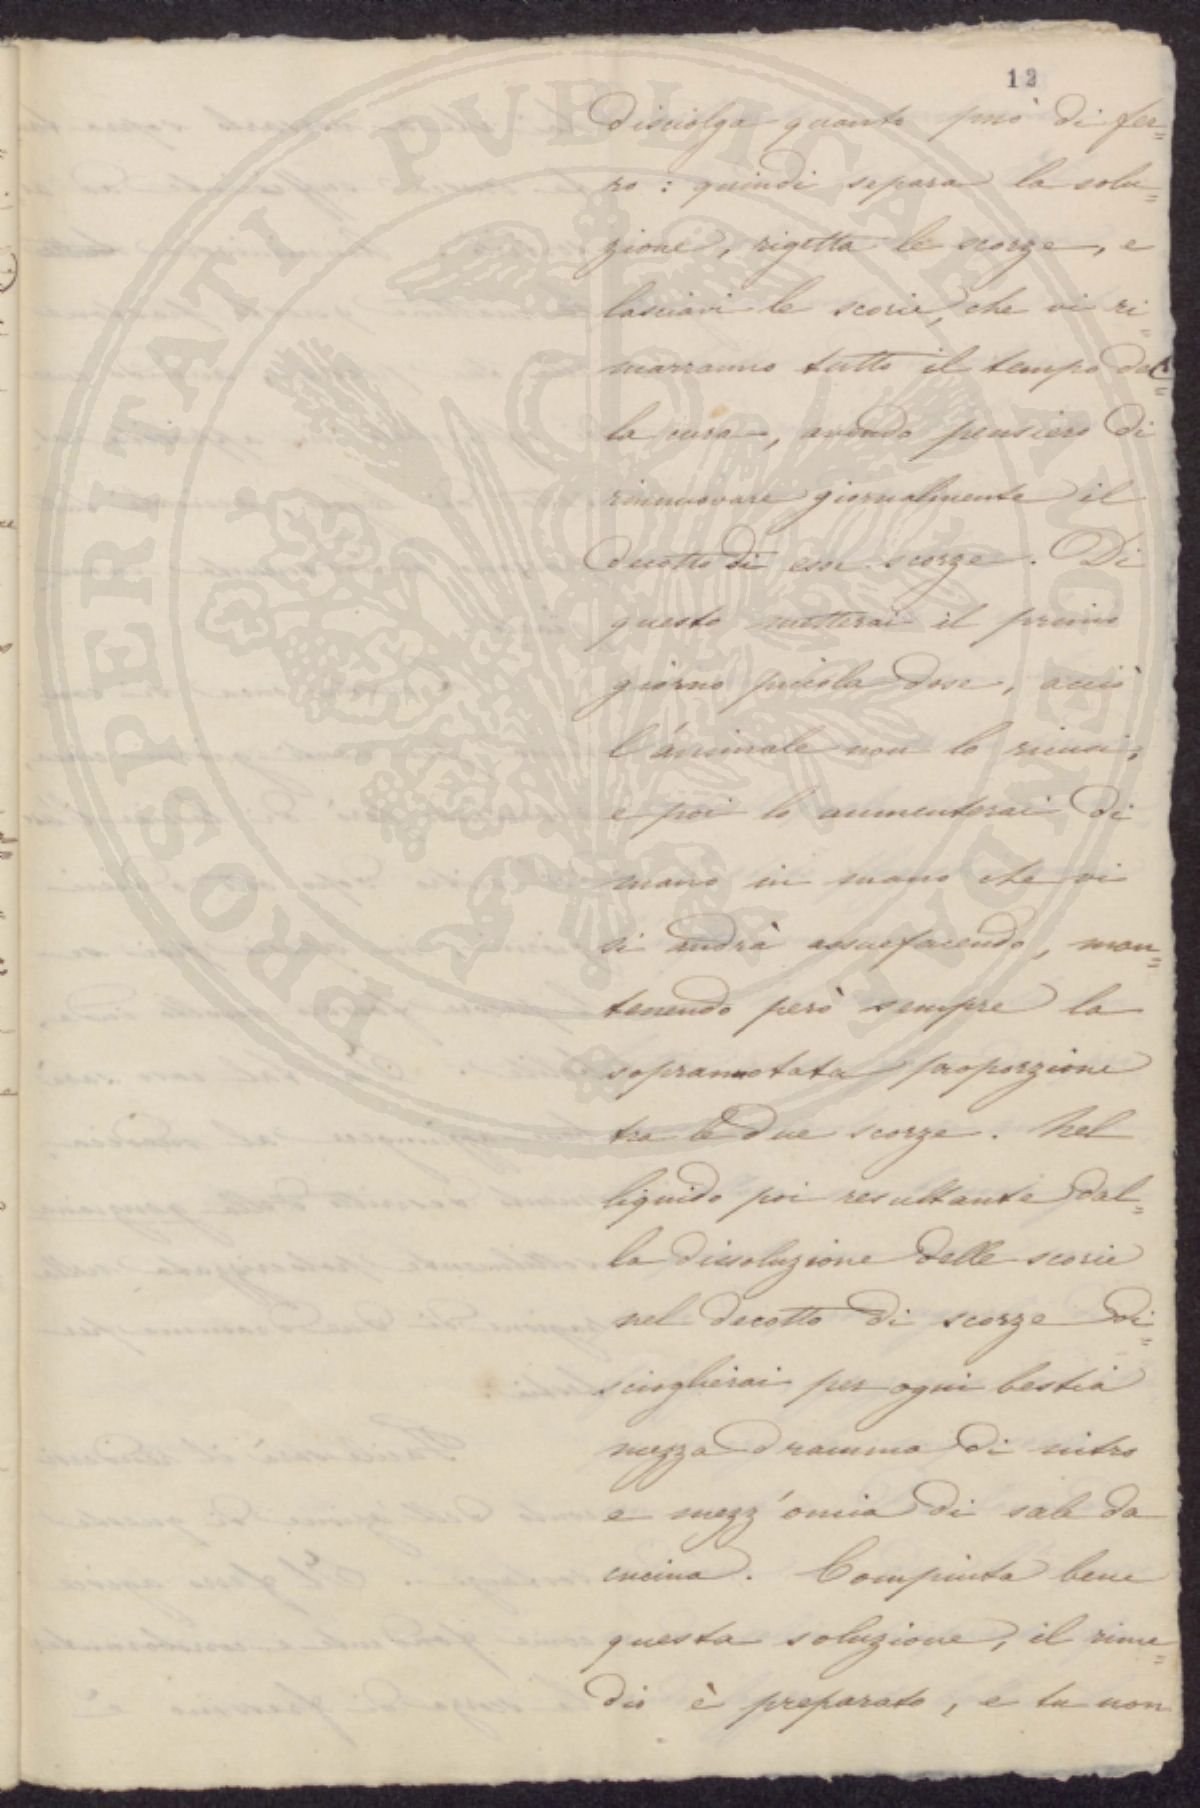 12
disciolga quanto può di fer=
ro: quindi separa la solu=
zione, rigetta le scorze, e
lasciavi le scorie, che vi ri=
marranno tutto il tempo del=
la cura, avendo pensiero di
rinnuovare giornalmente il
decotto di esse scorze. Di
questo metterai il primo
giorno piccola dose, acciò
l'animale non lo ricusi,
e poi lo aumenterai di
mano in mano che vi
si andrà assuefacendo, man=
tenendo però sempre la
soprannotata proporzione
tra le due scorze. Nel
liquido poi resultante dal=
la dissoluzione delle scorie
nel decotto di scorze di=
scioglierai per ogni bestia
mezza dramma di nitro
e mezz'oncia di sale da
cucina. Compiuta bene
questa soluzione, il rime=
dio è preparato, e tu non
PROSPERITATI PUBLICAE AUGENDAE